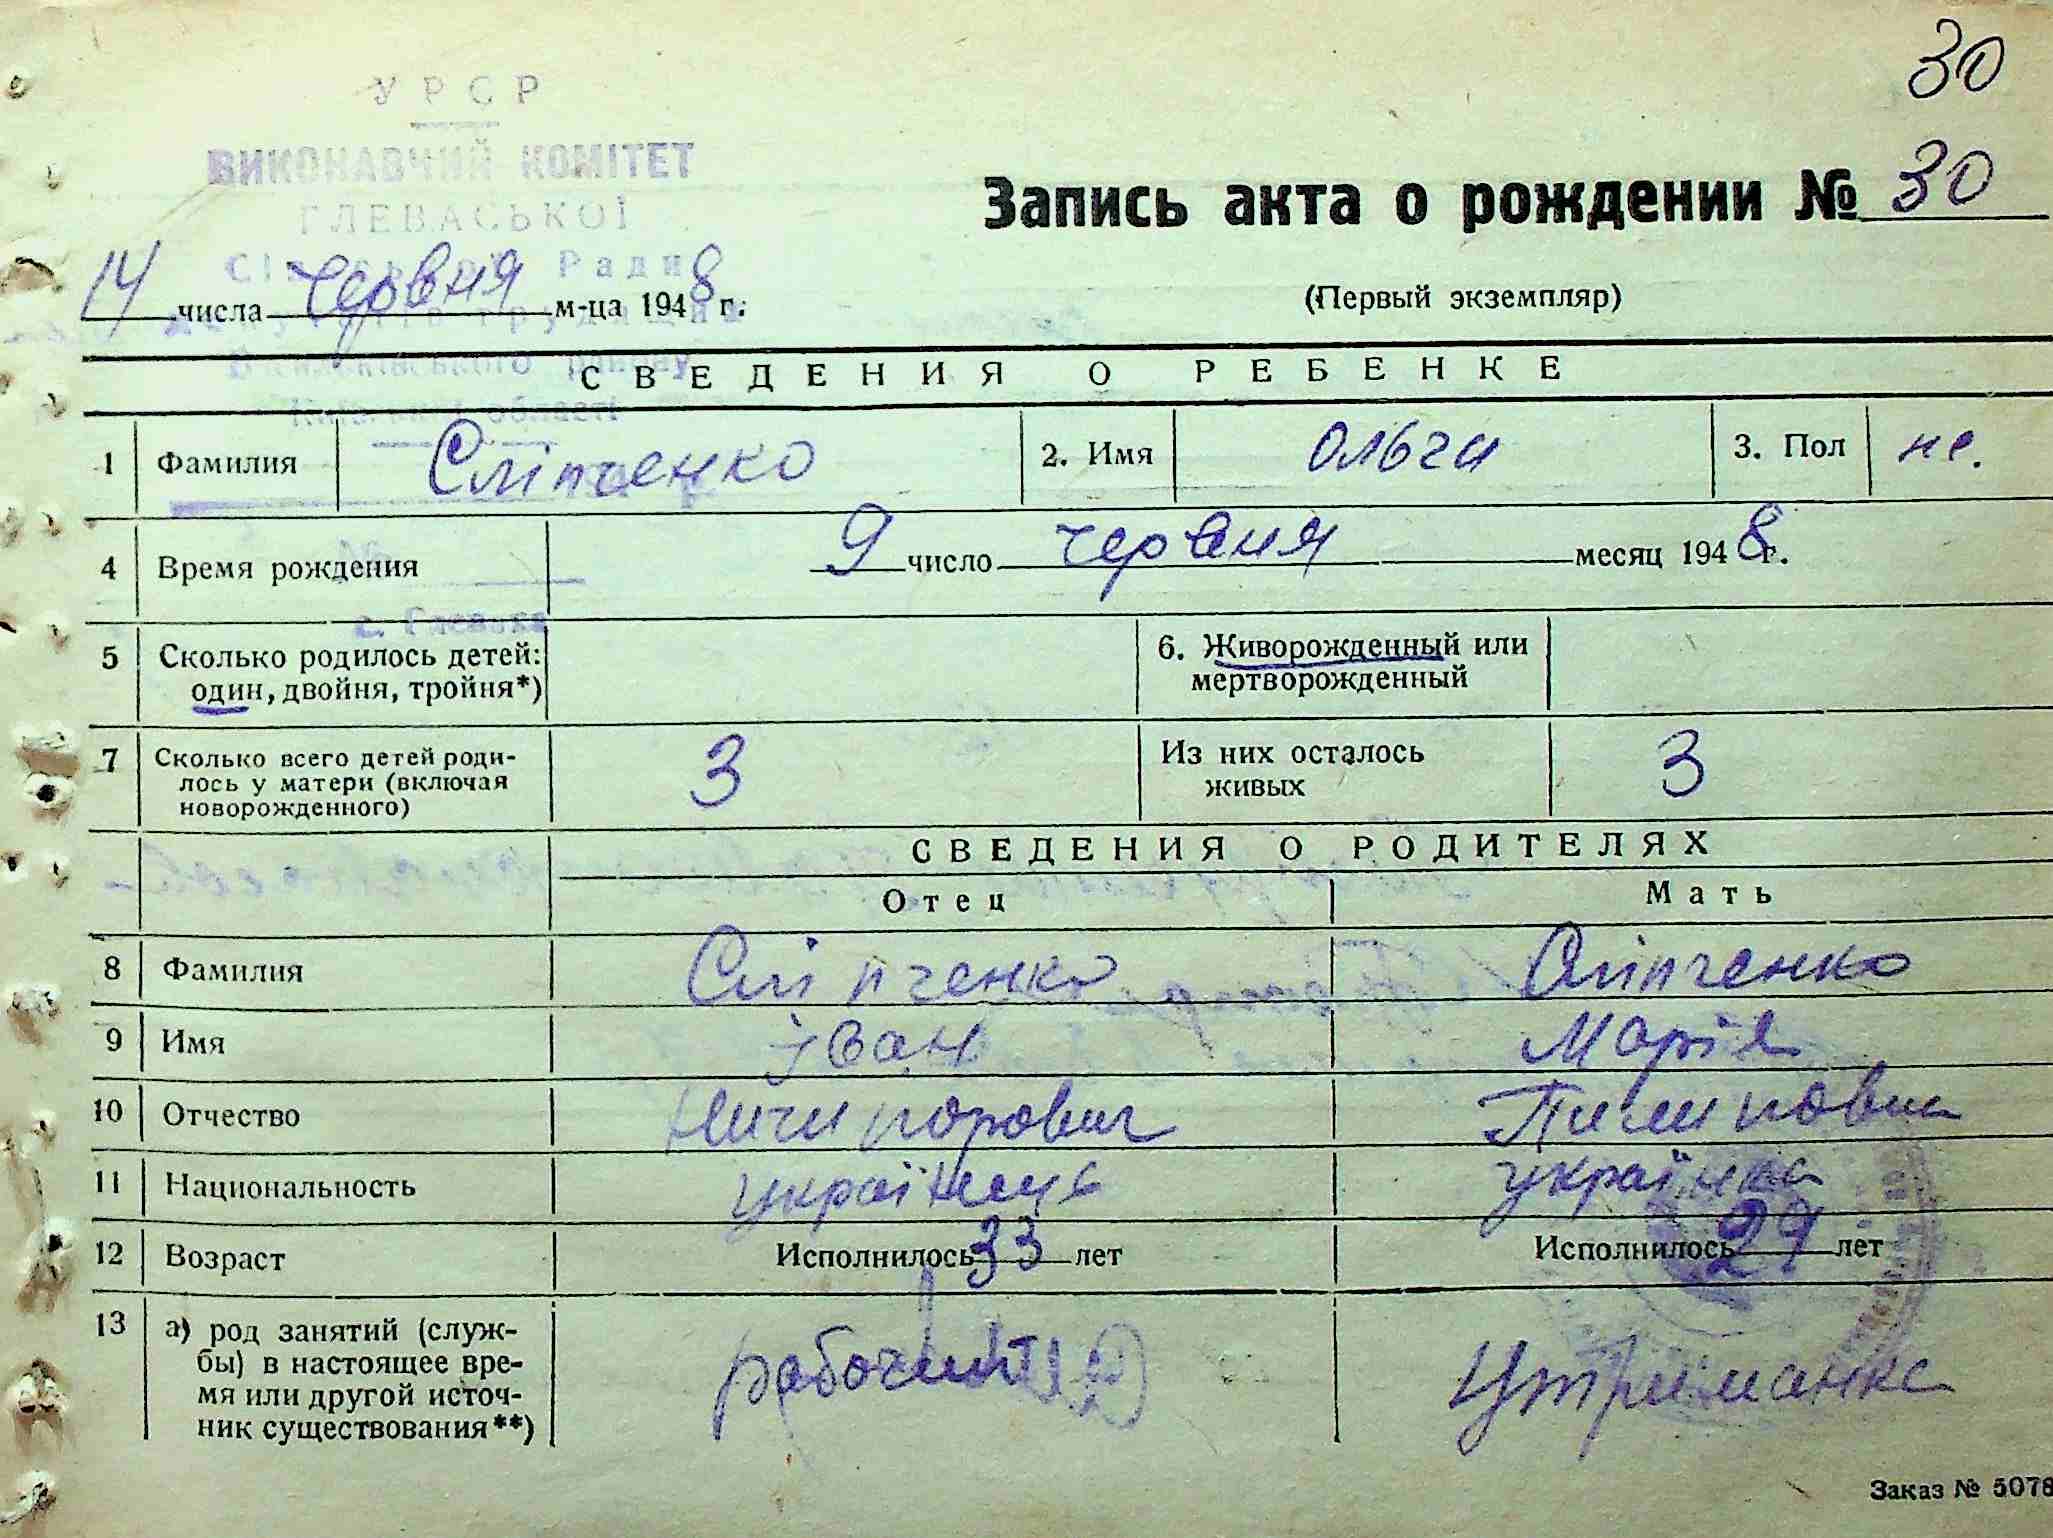 30
УРСР
ВИКОНАВЧИЙ КОМІТЕТ
ГЛЕВАСЬКОЇ
Сільської Ради
Запись акта о рождении № 30
(Первый экземпляр)
14 числа червня м-ца 1948 г.
Васильківського району
Київської області
СВЕДЕНИЯ О РЕБЕНКЕ
1 Фамилия Сліпченко 2. Имя Ольга 3. Пол
4 Время рождения 9 число червня месяц 1948 г.
с. Глеваха
5 Сколько родилось детей: один, двойня, тройня*)
6. Живорожденный или мертворожденный
7 Сколько всего детей родилось у матери (включая новорожденного) 3
Из них осталось живых 3
СВЕДЕНИЯ О РОДИТЕЛЯХ
Отец Мать
8 Фамилия Сліпченко Сліпченко
9 Имя Іван Марія
10 Отчество Ничипорович Пилиповна
11 Национальность українець українка
12 Возраст Исполнилось 33 лет Исполнилось 29 лет
13 а) род занятий (службы) в настоящее время или другой источник существования**) рабочий утриманка
Заказ № 5078